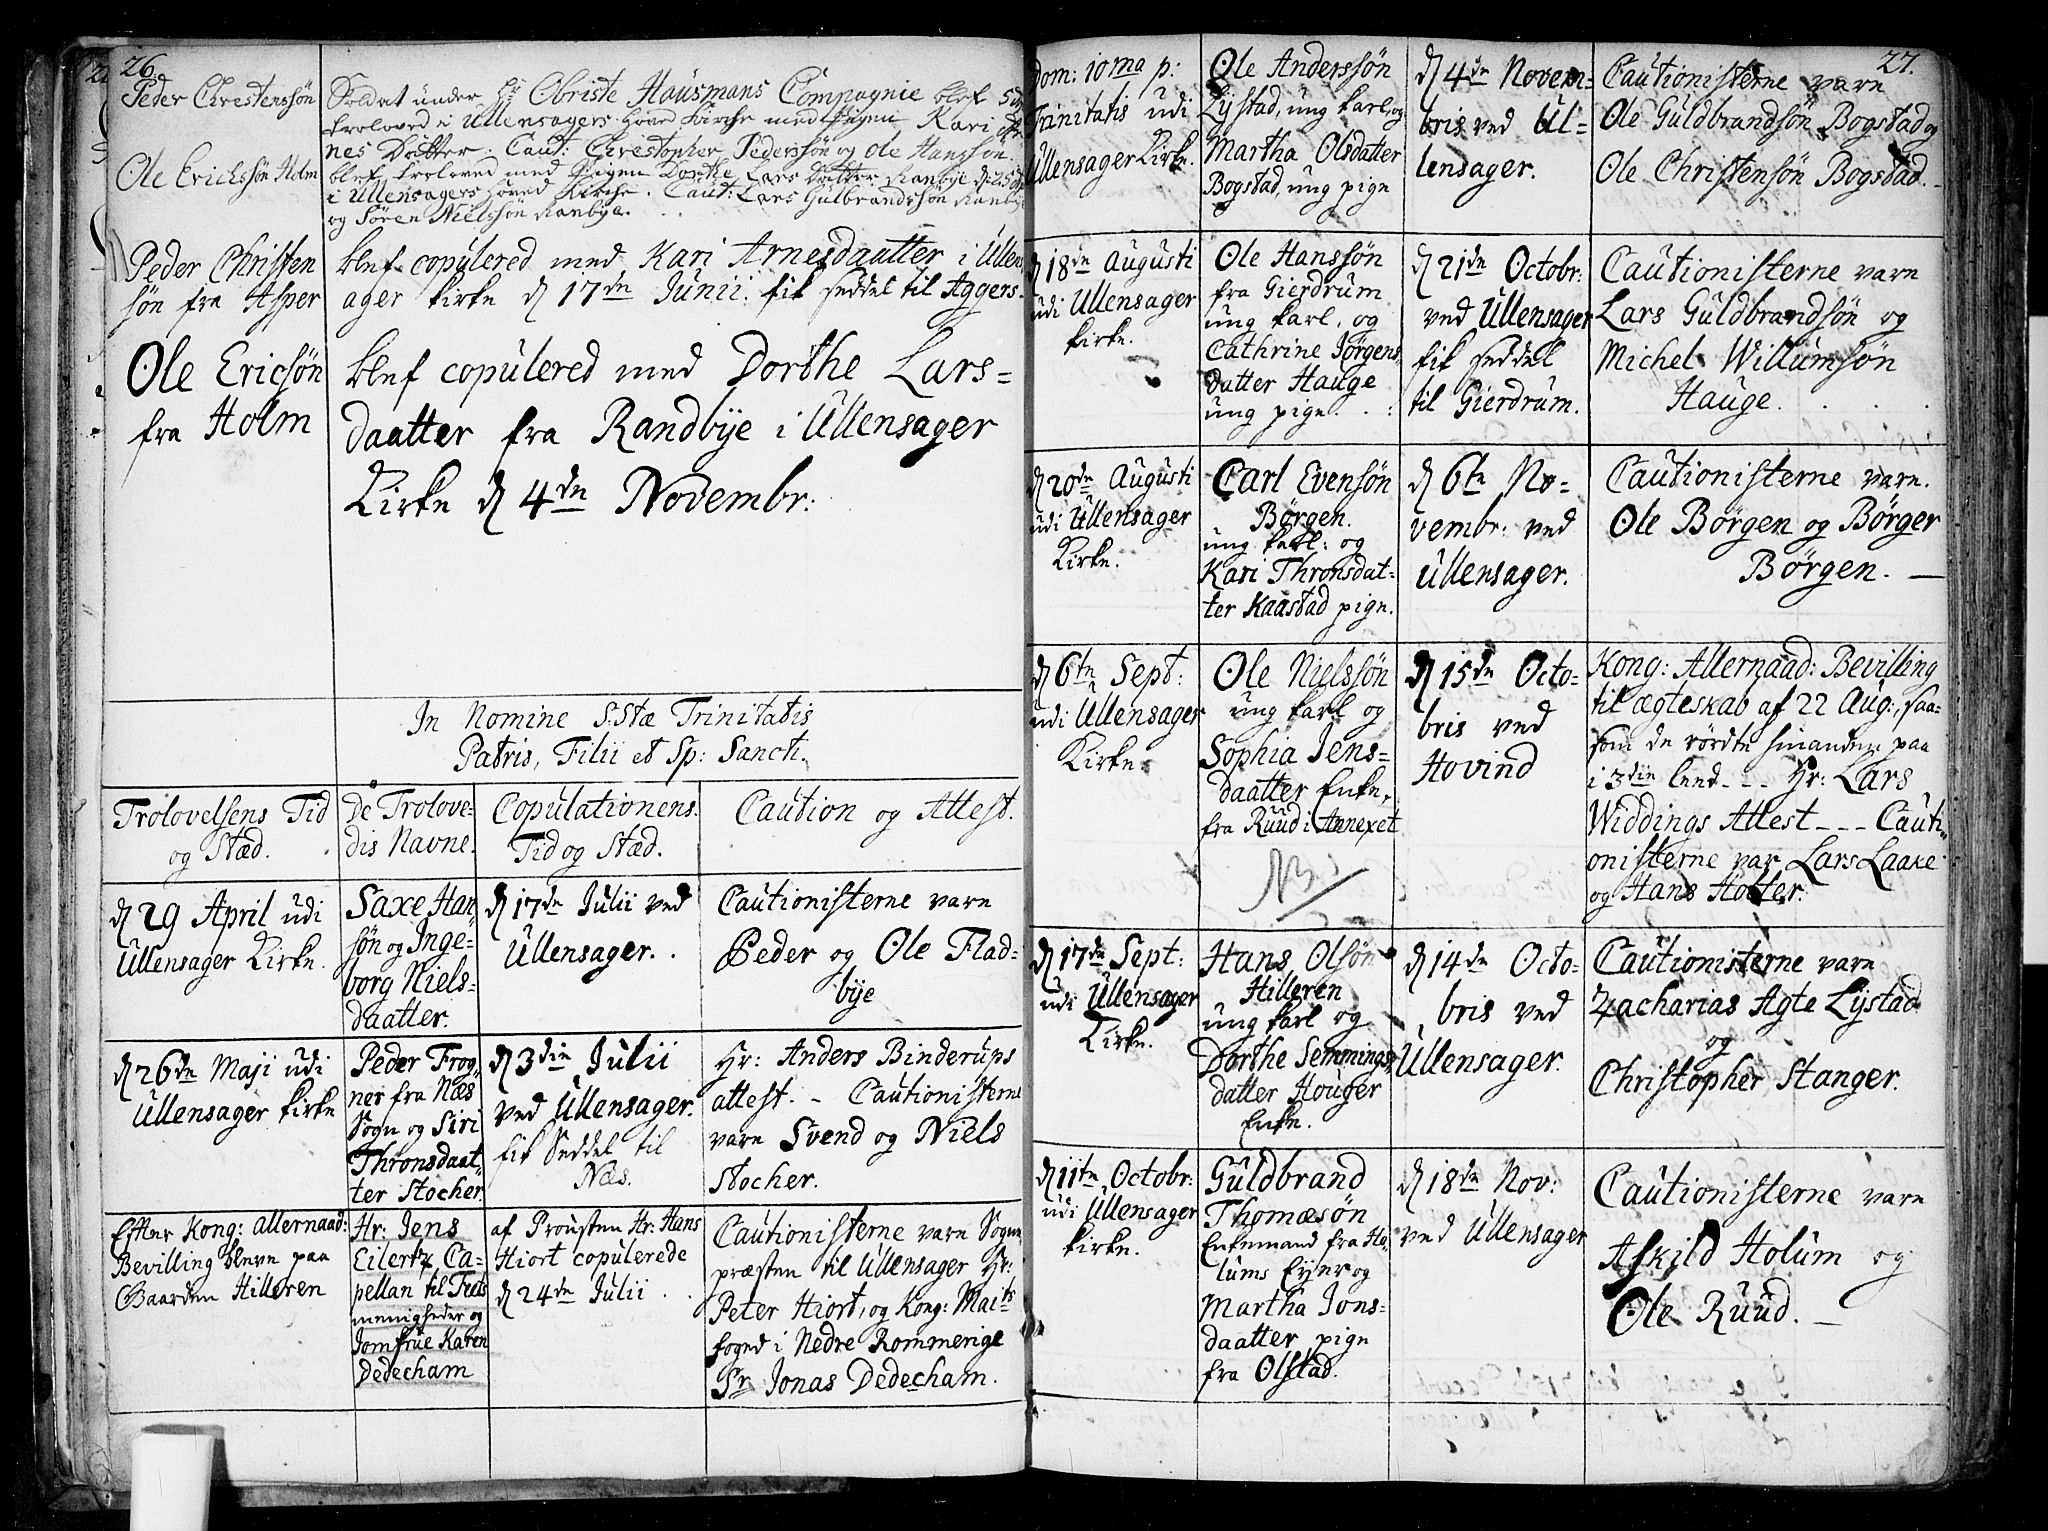 26.
Peder Chrestenssön
Soldat under Hr Obriste Hausmans Compagnie blef
troloved i Ullensagers Hoved Kirche med Pigen Kari Ar-
nes Datter. Caut: Chrestopher Pederssön og Ole Hanssön.
Ole Erichssön Holm
blef troloved med Pigen Dorthe Lars Datter Ranbye d. 25
i Ullensagers Hoved Kirche. Caut: Lars Gulbrandssön Ranbye
og Sören Nielssön Ranbye.
Peder Christen
sön fra Asper
blef copulered med Kari Arnesdaatter i Ullens
ager Kirke d 17de Junii. fik seddel til Aggers.
Ole Ericsön
fra Holm
blef copulered med Dorthe Lars-
daatter fra Randbye i Ullensager
Kirke d 4de Novembr:
In Nomine S:Stæ Trinitatis
Patris, Filii et Sp: Sancti.
Trolovelsens Tid
og Stæd.
De Trolove-
dis Navne.
Copulationens
Tid og Stæd.
Caution og Attest.
d 29 April udi
Ullensager Kirke.
Saxe Han
sön og Inge-
borg Niels-
daatter.
d 17de Julii ved
Ullensager.
Cautionisterne vare
Peder og Ole Flad-
bye
d 26de Maji udi
Ullensager Kirke
Peder Frog-
ner fra Næs
Sogn og Siri
Thronsdaat-
ter Stocher.
d 3die Julii
ved Ullensager.
fik Seddel til
Næs.
Hr: Anders Binderups
attest. - Cautionisterne
vare Svend og Niels
Stocher.
Efter Kong: allernaad:
Bevilling bleve paa
Gaarden Hilleren
Hr: Jens
Eilertz Ca-
pellan til Feets
menigheder og
Jomfrue Karen
Dedecham
af Prousten Hr: Hans
Hiort copulerede
d 24de Julii
Cautionisterne vare Sogne
præsten til Ullensager Hr:
Peter Hiort, og Kong: Maits
foged i Nedre Rommerige
Sr Jonas Dedecham.
27.
Dom: 10ma p:
Trinitatis udi
Ullensager Kirke.
Ole Anderssön
Lystad, ung karl, og
Martha Olsdatter
Bogstad, ung pige
d 4de Novem-
bris ved Ul-
lensager.
Cautionisterne vare
Ole Guldbrandsön Bogstad og
Ole Christensön Bogstad.
d 18de Augusti
udi Ullensager
Kirke.
Ole Hanssön
fra Gierdrum
ung karl, og
Cathrine Jörgens
datter Hauge
ung pige
d 21de Octobr:
ved Ullensager
fik seddel
til Gierdrum.
Cautionisterne vare
Lars Guldbrandsön og
Michel Willumsön
Hauge.
d 20de Augusti
udi Ullensager
Kirke.
Carl Evensön
Börgen.
ung karl: og
Kari Thronsdat-
ter Kaastad pige.
d 6te No-
vembr: ved
Ullensager.
Cautionisterne vare.
Ole Börgen og Börger
Börgen.
d 6te Sept:
udi Ullensager
Kirke
Ole Nielssön
ung karl og
Sophia Jens-
daatter Enke,
fra Ruud i Annexet
NB
d 15de Octo-
bris ved
Hovind
Kong: Allernaad: Bevilling
til ægteskab af 22 Aug:, saa-
som de rördte hinanden paa
i 3die leed - - - Hr: Lars
Widdings Attest - - - Cauti-
onisterne var Lars Laake
og Hans Holter.
d 17de Sept:
udi Ullensager
Kirke.
Hans Olsön
Hilleren
ung karl og
Dorthe Semmings
datter Houger
Enke.
d 14de Octo-
bris ved
Ullensager.
Cautionisterne vare
Zacharias Agte Lystad
og
Christopher Stanger.
d 11te Octobr:
udi Ullensager
Kirke.
Guldbrand
Thomæsön
Enkemand fra Ho-
lums Eyer og
Martha Jons-
daatter pige
fra Olstad.
d 18de Nov:
ved Ullensager
Cautionisterne vare
Askild Holum og
Ole Ruud.